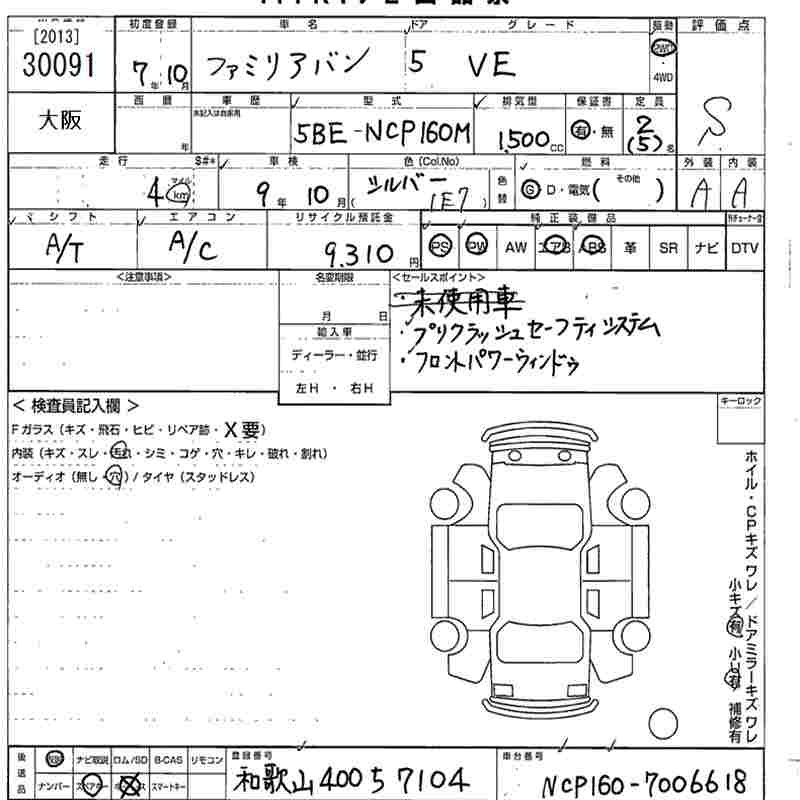 [2013]
30091
初度登録 車名 ドア グレード 駆動 評価点
7年 10月 ファミリアバン 5 VE 2WD ・ 4WD S
大阪
西暦 車歴 型式 排気量 保証書 定員
年 未記入は自家用 5BE-NCP160M 1,500cc 有・無 2(5)名
走行 S#* 車検 色(Col.No) 燃料 外装 内装
4 マイル km 9年 10月 ( シルバー 1E7 ) 色替 G D・電気( その他 ) A A
シフト エアコン リサイクル預託金 純正装備品
A/T A/C 9,310円 PS PW AW エアB ABS 革 SR ナビ DTV
<注意事項> 名変期限 <セールスポイント>
月 日 ・未使用車
輸入車 ・プリクラッシュセーフティシステム
ディーラー・並行 ・フロントパワーウィンドゥ
左H ・ 右H
< 検査員記入欄 > キーロック
Fガラス(キズ・飛石・ヒビ・リペア跡・X要)
内装(キズ・スレ・汚れ・シミ・コゲ・穴・キレ・破れ・割れ)
オーディオ(無し・穴)/タイヤ(スタッドレス)
ホイル・CPキズ ワレ/ドアミラーキズ ワレ
小キズ有 小U有 補修有
後送品 ナビ取説 ロム/SD B-CAS リモコン 登録番号 車台番号
ナンバー スペアキー スマートキー 和歌山 400 ち 7104 NCP160-7006618